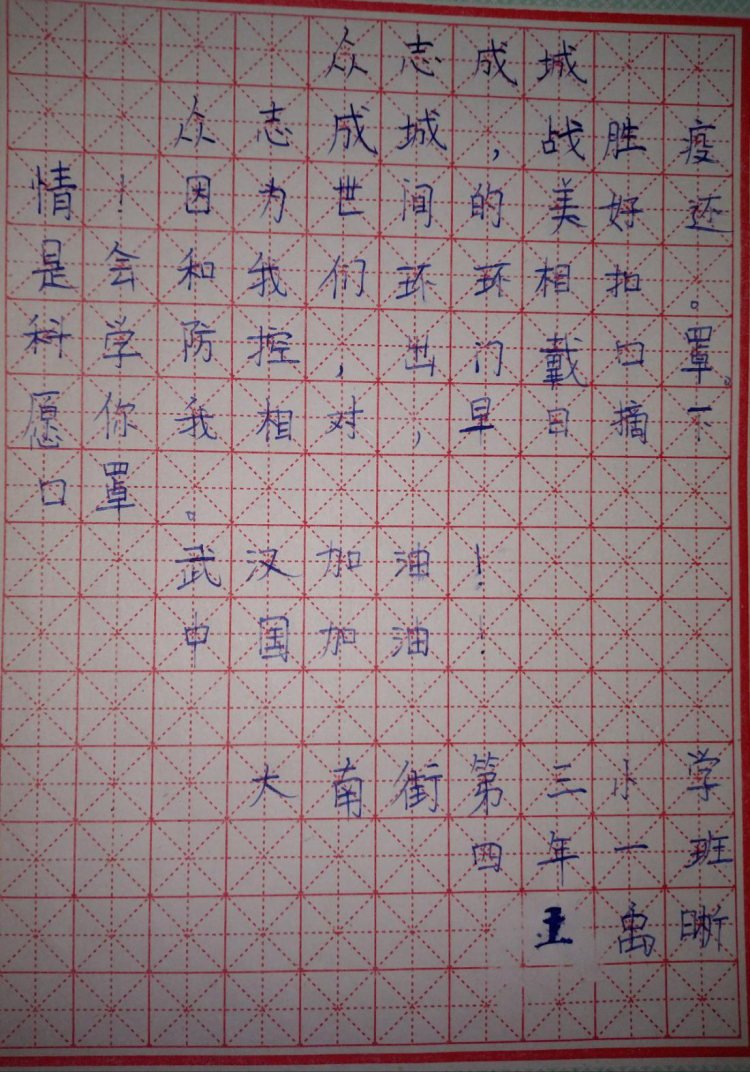 众志成城
众志成城,战胜疫
情!因为世间的美好还
是会和我们环环相扣。
科学防控,出门戴口罩。
愿你我相对,早日摘下
口罩。
武汉加油!
中国加油!
大南街第三小学
四年一班
王禹晰